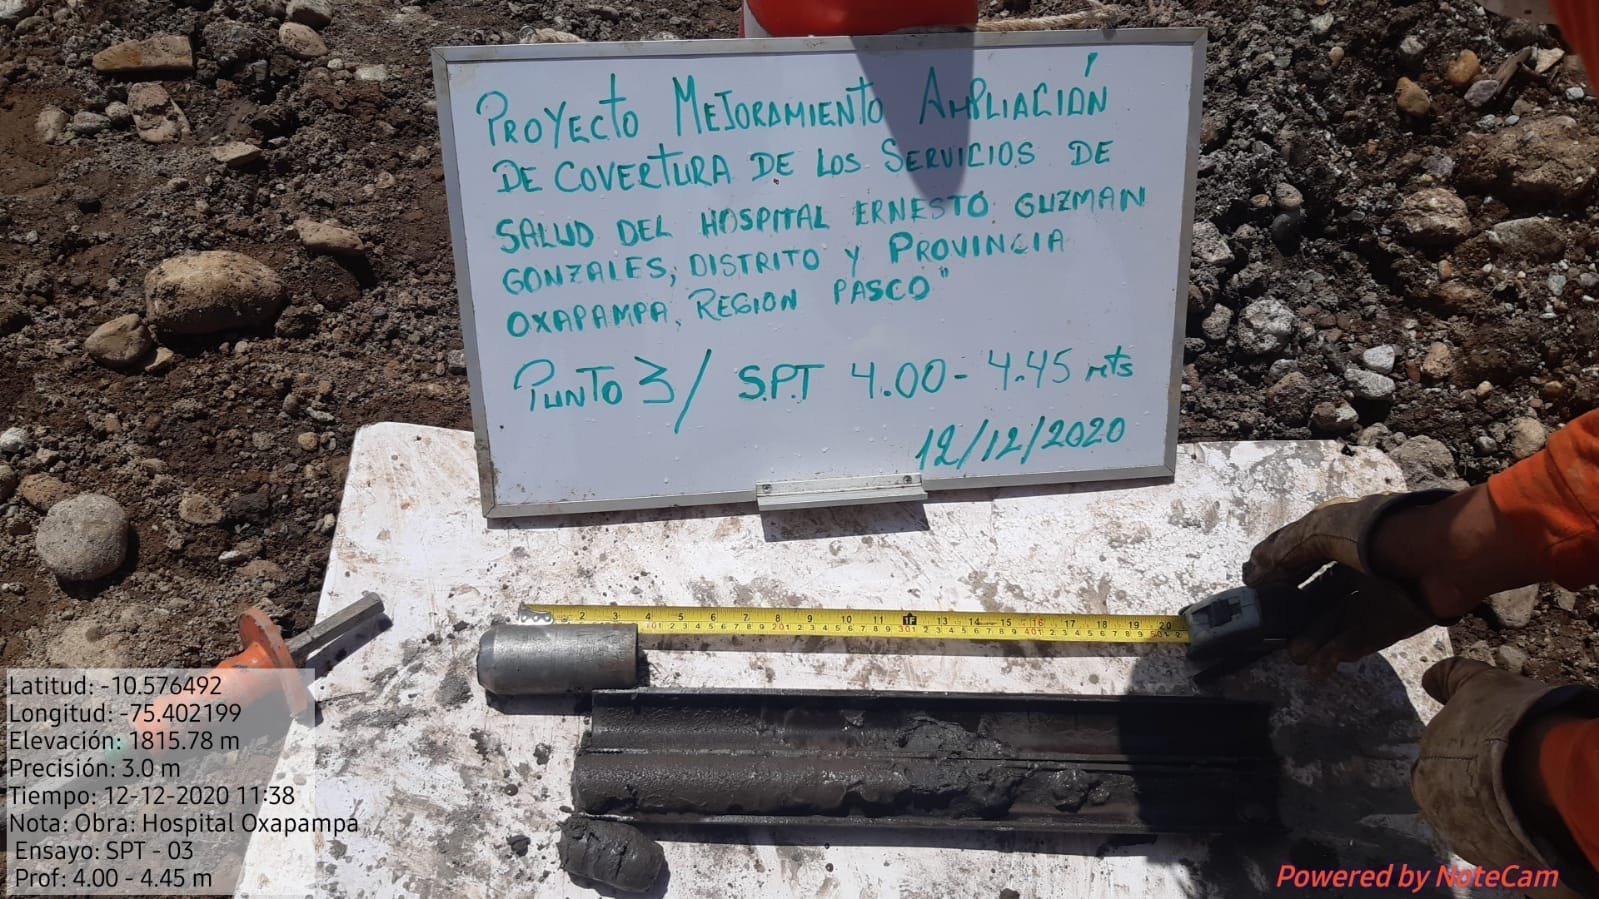 PROYECTO MEJORAMIENTO AMPLIACIÓN
DE COVERTURA DE LOS SERVICIOS DE
SALUD DEL HOSPITAL ERNESTO GUZMAN
GONZALES, DISTRITO Y PROVINCIA
OXAPAMPA, REGION PASCO"
PUNTO 3/ S.P.T 4.00 - 4.45 mts
12/12/2020
2 3 4 5 6 7 8 9 10 11 1F 13 14 15 16 17 18 19 20
Latitud: -10.576492
Longitud: -75.402199
Elevación: 1815.78 m
Precisión: 3.0 m
Tiempo: 12-12-2020 11:38
Nota: Obra: Hospital Oxapampa
Ensayo: SPT - 03
Prof: 4.00 - 4.45 m
Powered by NoteCam